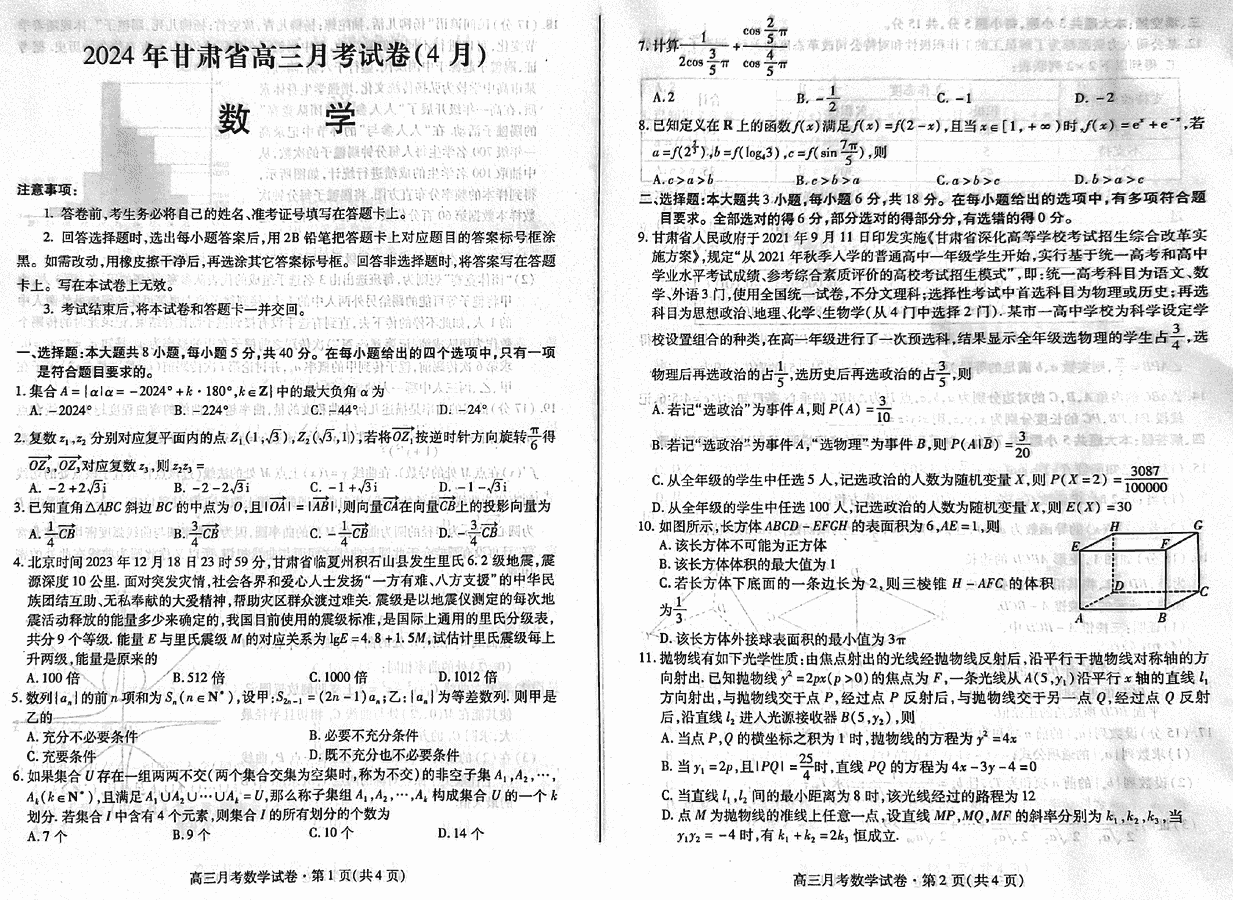 2024 年甘肃省高三月考试卷(4 月)
数 学
注意事项:
1. 答卷前,考生务必将自己的姓名、准考证号填写在答题卡上。
2. 回答选择题时,选出每小题答案后,用 2B 铅笔把答题卡上对应题目的答案标号框涂
黑。如需改动,用橡皮擦干净后,再选涂其它答案标号框。回答非选择题时,将答案写在答题
卡上。写在本试卷上无效。
3. 考试结束后,将本试卷和答题卡一并交回。
一、选择题:本大题共 8 小题,每小题 5 分,共 40 分。在每小题给出的四个选项中,只有一项
是符合题目要求的。
1. 集合 A={α|α=-2024°+k·180°,k∈Z}中的最大负角 α 为
A. -2024° B. -224° C. -44° D. -24°
2. 复数 z₁,z₂ 分别对应复平面内的点 Z₁(1,√3),Z₂(√3,1),若将OZ₁按逆时针方向旋转π/6得
OZ₃,OZ₃对应复数 z₃,则 z₂z₃=
A. -2+2√3i B. -2-2√3i C. -1+√3i D. -1-√3i
3. 已知直角△ABC 斜边 BC 的中点为 O,且|OA|=|AB|,则向量CA在向量CB上的投影向量为
A. 1/4CB B. 3/4CB C. -1/4CB D. -3/4CB
4. 北京时间 2023 年 12 月 18 日 23 时 59 分,甘肃省临夏州积石山县发生里氏 6.2 级地震,震
源深度 10 公里. 面对突发灾情,社会各界和爱心人士发扬“一方有难、八方支援”的中华民
族团结互助、无私奉献的大爱精神,帮助灾区群众渡过难关. 震级是以地震仪测定的每次地
震活动释放的能量多少来确定的,我国目前使用的震级标准,是国际上通用的里氏分级表,
共分 9 个等级. 能量 E 与里氏震级 M 的对应关系为 lgE=4.8+1.5M,试估计里氏震级每上
升两级,能量是原来的
A. 100 倍 B. 512 倍 C. 1000 倍 D. 1012 倍
5. 数列{aₙ}的前 n 项和为 Sₙ(n∈N*),设甲:S₂ₙ₋₁=(2n-1)aₙ;乙:{aₙ}为等差数列. 则甲是
乙的
A. 充分不必要条件 B. 必要不充分条件
C. 充要条件 D. 既不充分也不必要条件
6. 如果集合 U 存在一组两两不交(两个集合交集为空集时,称为不交)的非空子集 A₁,A₂,…,
Aₖ(k∈N*),且满足 A₁∪A₂∪…∪Aₖ=U,那么称子集组 A₁,A₂,…,Aₖ 构成集合 U 的一个 k
划分. 若集合 I 中含有 4 个元素,则集合 I 的所有划分的个数为
A. 7 个 B. 9 个 C. 10 个 D. 14 个
高三月考数学试卷·第 1 页(共 4 页)
7. 计算 1/(2cos 3/5 π) + (cos 2/5 π)/(cos 4/5 π)
A. 2 B. -1/2 C. -1 D. -2
8. 已知定义在 R 上的函数 f(x)满足 f(x)=f(2-x),且当 x∈[1,+∞)时,f(x)=eˣ+e⁻ˣ,若
b=f(log₄3),c=f(sin 7π/5),则
A. c>a>b B. c>b>a C. a>b>c D. b>a>c
二、选择题:本大题共 3 小题,每小题 6 分,共 18 分。在每小题给出的选项中,有多项符合题
目要求。全部选对的得 6 分,部分选对的得部分分,有选错的得 0 分。
9. 甘肃省人民政府于 2021 年 9 月 11 日印发实施《甘肃省深化高等学校考试招生综合改革实
施方案》,规定“从 2021 年秋季入学的普通高中一年级学生开始,实行基于统一高考和高中
学业水平考试成绩、参考综合素质评价的高校考试招生模式”,即:统一高考科目为语文、数
学、外语 3 门,使用全国统一试卷,不分文理科;选择性考试中首选科目为物理或历史;再选
科目为思想政治、地理、化学、生物学(从 4 门中选择 2 门). 某市一高中学校为科学设定学
校设置组合的种类,在高一年级进行了一次预选科,结果显示全年级选物理的学生占3/4,选
物理后再选政治的占1/5,选历史后再选政治的占3/5,则
A. 若记“选政治”为事件 A,则 P(A)=3/10
B. 若记“选政治”为事件 A,“选物理”为事件 B,则 P(A|B̄)=3/20
C. 从全年级的学生中任选 5 人,记选政治的人数为随机变量 X,则 P(X=2)=3087/100000
D. 从全年级的学生中任选 100 人,记选政治的人数为随机变量 X,则 E(X)=30
10. 如图所示,长方体 ABCD-EFGH 的表面积为 6,AE=1,则
A. 该长方体不可能为正方体
B. 该长方体体积的最大值为 1
C. 若长方体下底面的一条边长为 2,则三棱锥 H-AFC 的体积
为1/3
D. 该长方体外接球表面积的最小值为 3π
H G
E F
D C
A B
11. 抛物线有如下光学性质:由焦点射出的光线经抛物线反射后,沿平行于抛物线对称轴的方
向射出. 已知抛物线 y²=2px(p>0)的焦点为 F,一条光线从 A(5,y₁)沿平行 x 轴的直线 l₁
方向射出,与抛物线交于点 P,经过点 P 反射后,与抛物线交于另一点 Q,经过点 Q 反射
后,沿直线 l₂ 进入光源接收器 B(5,y₂),则
A. 当点 P,Q 的横坐标之积为 1 时,抛物线的方程为 y²=4x
B. 当 y₁=2p,且|PQ|=25/4时,直线 PQ 的方程为 4x-3y-4=0
C. 当直线 l₁,l₂ 间的最小距离为 8 时,该光线经过的路程为 12
D. 点 M 为抛物线的准线上任意一点,设直线 MP,MQ,MF 的斜率分别为 k₁,k₂,k₃,当
y₁y₂=-4 时,有 k₁+k₂=2k₃ 恒成立.
高三月考数学试卷·第 2 页(共 4 页)